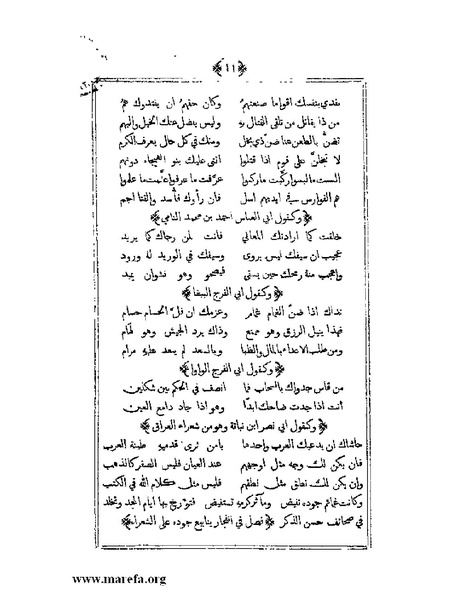 ﴿ ٤١ ﴾
تفدي بنفسك أقواما صنعتهم وكان حقهم أن يفتدوك هم
من ذا يقاتل من تلقى القتال به وليس يفضل عنك الخيل والبهم
تضن بالطعن عنا ضن ذي بخل ومنك في كل حال يعرف الكرم
لا تبخلن على قوم إذا قتلوا اثنى عليك بنو الهيجاء دونهم
ألبست ما لبسوا ركبت ما ركبوا عرفت ما عرفوا علمت ما علموا
هم الفوارس في ايديهم اسل فان رأوك فأسد والقنا اجم
﴿ وكقول ابي العباس احمد بن محمد النامي ﴾
خلقت كما ارادتك المعالي فانت لمن رجاك كما يريد
عجيب ان سيفك ليس يروى وسيفك في الوريد له ورود
واعجب منه رمحك حين يسقى فيصحو وهو نشوان يميد
﴿ وكقول ابي الفرج الببغا ﴾
نداك اذا ضن الغمام غمام وعزمك ان فل الحسام حسام
فهذا ينيل الرزق وهو ممنع وذاك يرد الجيش وهو لهام
ومن طلب الاعداء بالمال والظبا وبالسعد لم يبعد عليه مرام
﴿ وكقول ابي الفرج الواوا ﴾
من قاس جدواك بالسحاب فما انصف في الحكم بين شكلين
انت اذا جدت ضاحك ابدا وهو اذا جاد دامع العين
﴿ وكقول ابي نصر ابن نباتة وهو من شعراء العراق ﴾
حاشاك ان يدعيك العرب واحدها يامن ثرى قدميه طينة العرب
فان يكن لك وجه مثل اوجههم عند العيان فليس الصفر كالذهب
وان يكن لك نطق مثل نطقهم فليس مثل كلام الله في الكتب
وكانت غمائم جوده تفيض ومآثر كرمه تستفيض فتؤرخ بها ايام المجد وتخلد
في صحائف حسن الذكر ﴿ فصل في انفجار ينابيع جوده على الشعراء ﴾
www.marefa.org